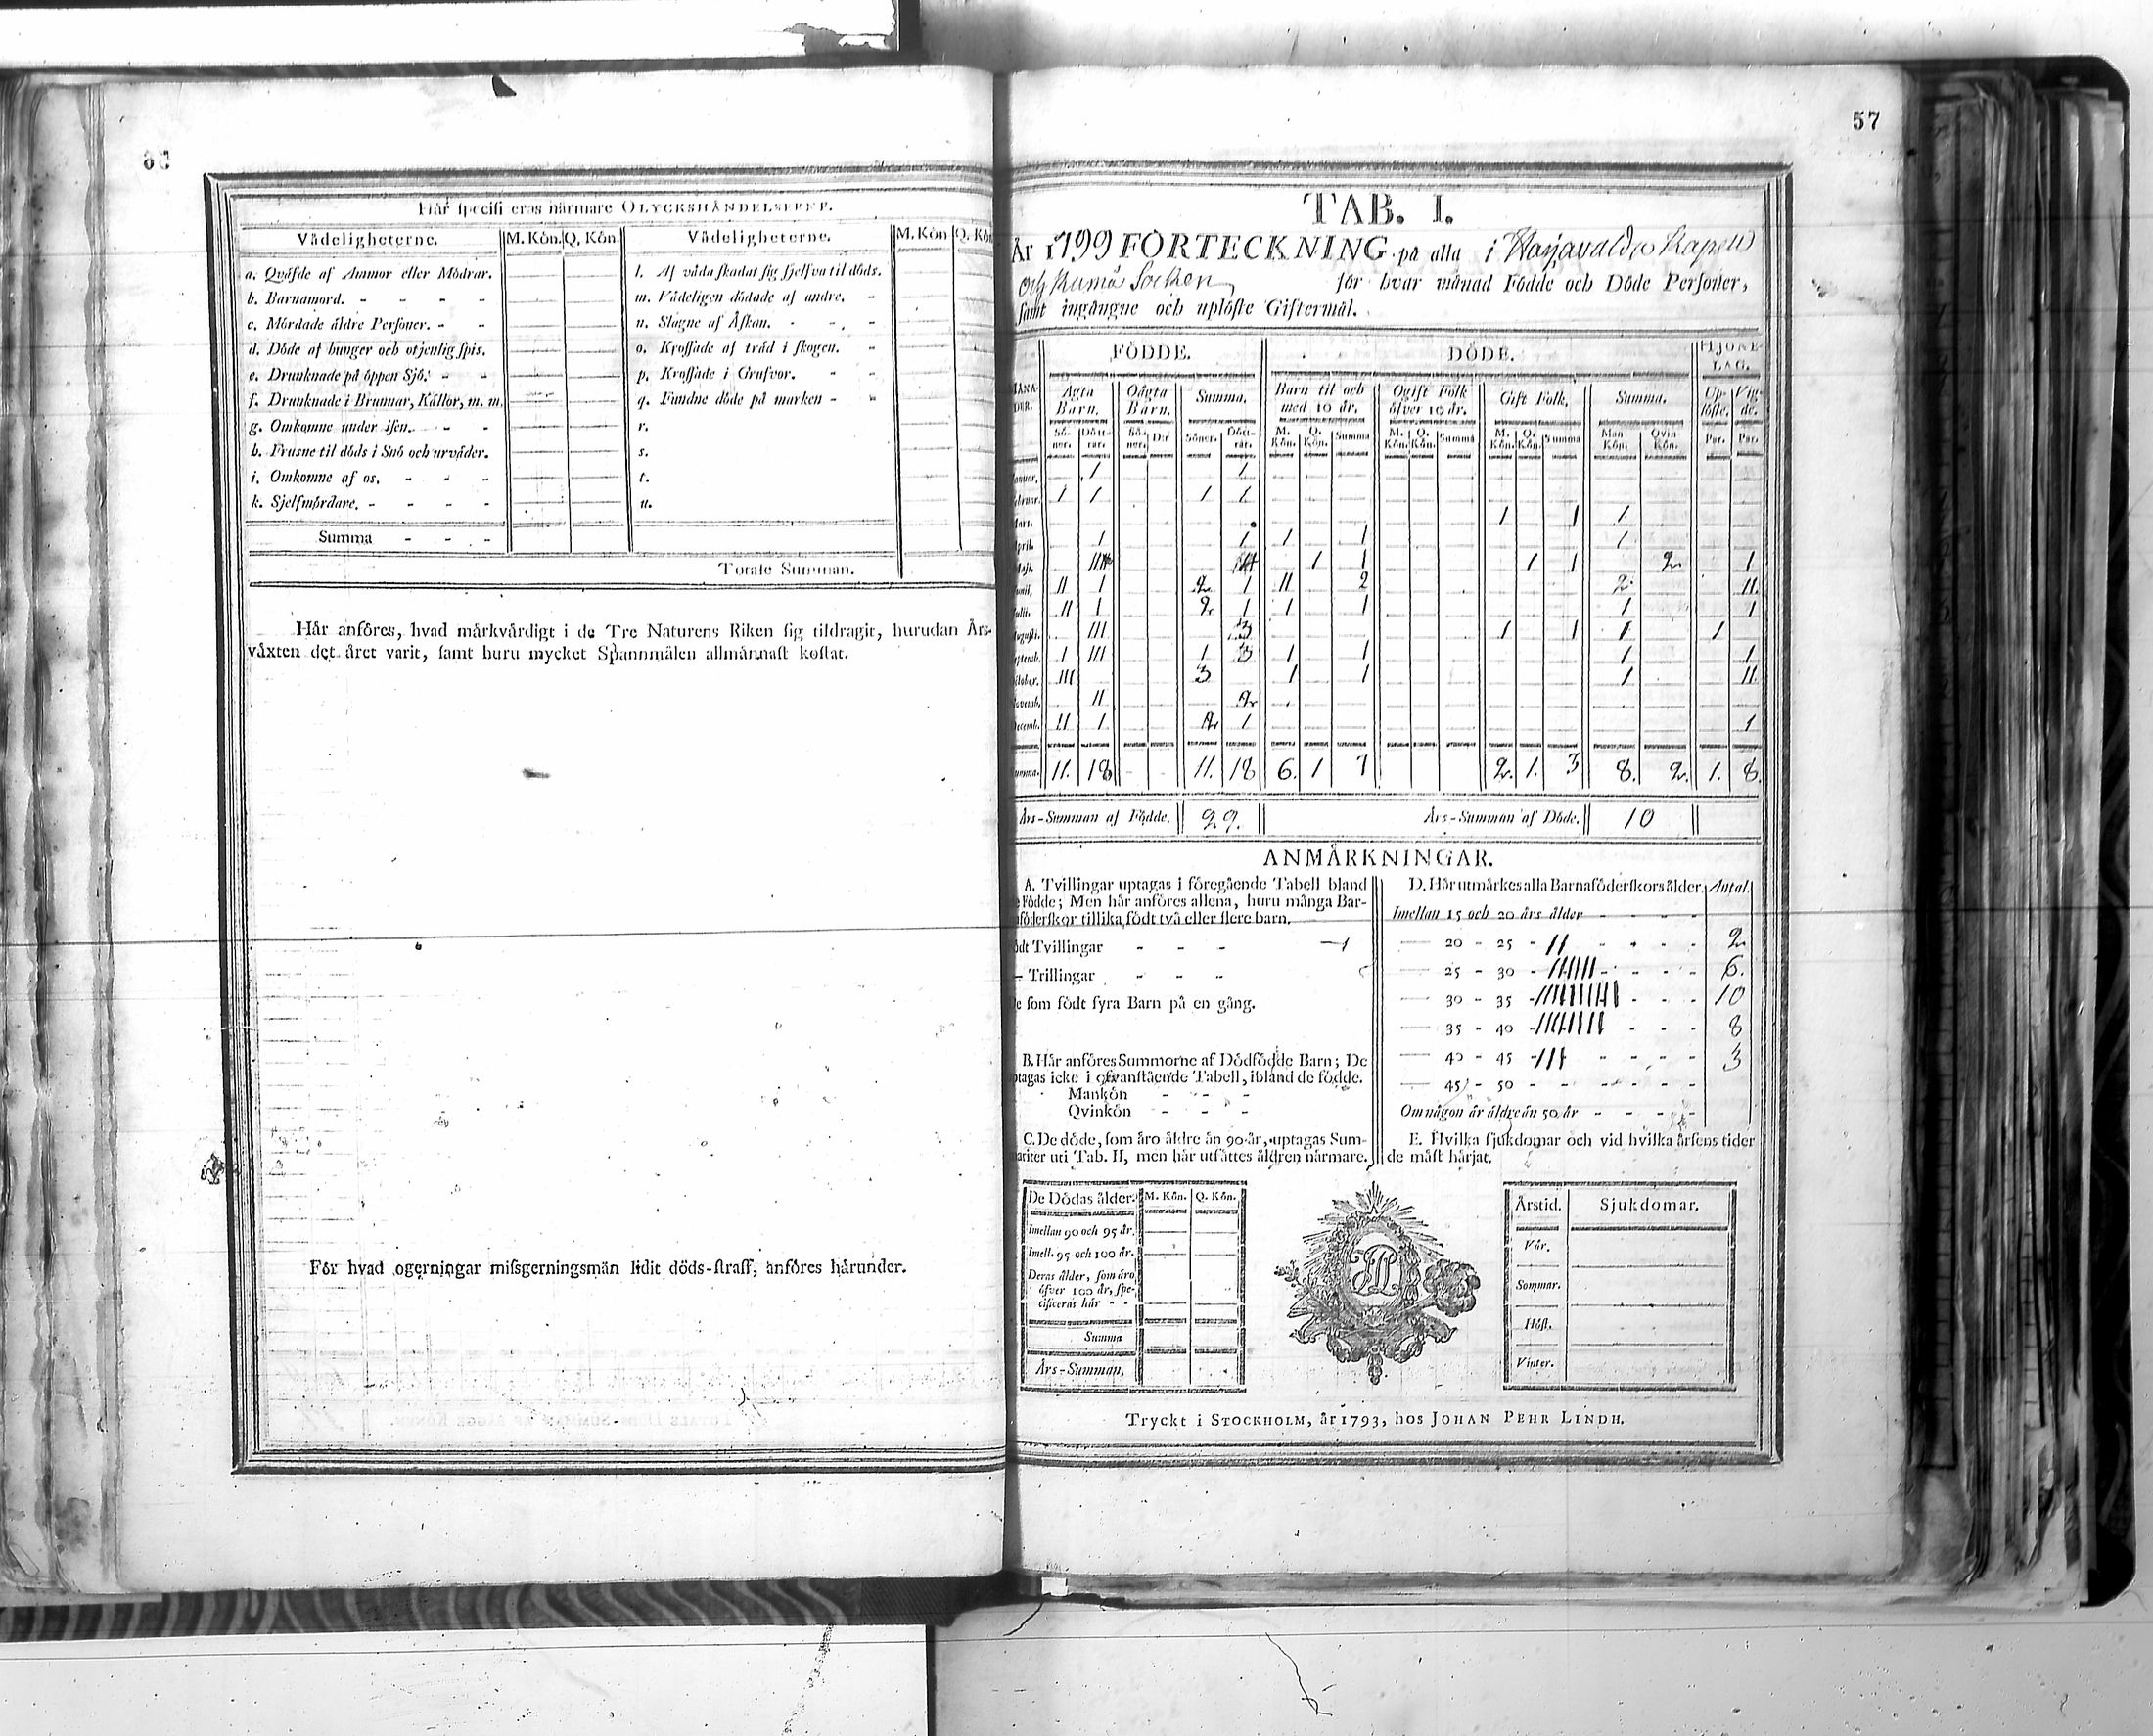 56
Här specificeras närmare OLYCKSHÄNDELSERNE.
Vådeligheterne. M. Kön. Q. Kön. Vådeligheterne. M. Kön Q. Kön
a. Qväfde af Ammor eller Mödrar. l. Af våda skadat sig sjelfva til döds.
b. Barnamord. - - - - m. Vådeligen dödade af andre. -
c. Mördade äldre Personer. - - n. Slagne af Åskan. - - -
d. Döde af hunger och otjenlig spis. o. Krossade af träd i skogen. -
e. Drunknade på öppen Sjö. - - p. Krossade i Grufvor. - -
f. Drunknade i Brunnar, Källor, m. m. q. Fundne döde på marken - -
g. Omkomne under isen. - - r.
h. Frusne til döds i Snö och urväder. s.
i. Omkomne af os. - - - t.
k. Sjelfmördare. - - - - u.
Summa - - -
Totale Summan.
Här anföres, hvad märkvärdigt i de Tre Naturens Riken sig tildragit, hurudan Års-
växten det året varit, samt huru mycket Spannmålen allmännast kostat.
För hvad ogerningar missgerningsmän lidit döds-straff, anföres härunder.
57
TAB. I.
År 1799 FÖRTECKNING på alla i Harjavalda Kapell
och Kumå Socken för hvar månad Födde och Döde Personer,
samt ingångne och uplöste Giftermål.
FÖDDE. DÖDE. HJONE-LAG.
MÅNADER. Ägta Barn. Oägta Barn. Summa. Barn til och med 10 år. Ogift Folk öfver 10 år. Gift Folk. Summa. Uplöste. Vigde.
Söner. Döttrar. Söner. D:r Söner. Döttrar. M. Kön. Q. Kön. Summa M. Kön. Q. Kön. Summa M. Kön. Q. Kön. Summa Man Kön. Qvin Kön. Par. Par.
Januar. 1 1
Februar. 1 1 1 1
Mart. 1 1 1
April. 1 1 1 1 1
Maji. 1 1 1 1 2 1
Junii. II 1 2 1 II 2 2 II.
Julii. II 1 2 1 1 1 1 1
Augusti. III 3 1 1 1 1
Septemb. 1 III 1 3 1 1 1 1
October. III 3 1 1 1 II
Novemb. II 2
Decemb. II 1 2 1 1
Summa. 11. 18 11. 18 6. 1 7 2. 1. 3 8. 2. 1. 8.
Års-Summan af Födde. 29. Års-Summan af Döde. 10
ANMÄRKNINGAR.
A. Tvillingar uptagas i föregående Tabell bland
de Födde; Men här anföres allena, huru många Bar-
naföderskor tillika födt två eller flere barn.
Födt Tvillingar - - - 1
— Trillingar - - -
De som födt fyra Barn på en gång.
B. Här anföres Summorne af Dödfödde Barn; De
uptagas icke i ofvanstående Tabell, ibland de födde.
Mankön - - -
Qvinkön - - -
C. De döde, som äro äldre än 90 år, uptagas Sum-
mariter uti Tab. II, men här utsättes åldren närmare.
D. Här utmärkes alla Barnaföderskors ålder. Antal.
Imellan 15 och 20 års ålder - - - -
— 20 - 25 - II - - - - 2
— 25 - 30 - IIIIII - - - - 6.
— 30 - 35 - IIIIIIIIII - - - 10
— 35 - 40 - IIIIIIII - - - 8
— 40 - 45 - III - - - - 3
— 45 - 50 - - - - - -
Om någon är äldre än 50 år - - - -
E. Hvilka sjukdomar och vid hvilka årsens tider
de mäst härjat.
De Dödas ålder. M. Kön. Q. Kön.
Imellan 90 och 95 år.
Imell. 95 och 100 år.
Deras ålder, som äro
öfver 100 år, spe-
cificeras här - -
Summa
Års-Summan.
Årstid. Sjukdomar.
Vår.
Sommar.
Höst.
Vinter.
Tryckt i STOCKHOLM, år 1793, hos JOHAN PEHR LINDH.